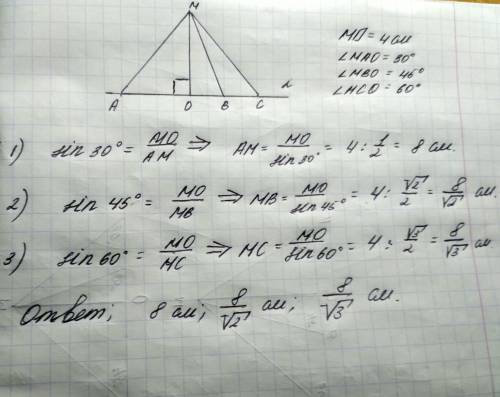 M
A O B C α
MO = 4 см
∠MAO = 30°
∠MBO = 45°
∠MCO = 60°
1) sin 30° = MO/AM ⇒ AM = MO/sin 30° = 4 : 1/2 = 8 см.
2) sin 45° = MO/MB ⇒ MB = MO/sin 45° = 4 : √2/2 = 8/√2 см.
3) sin 60° = MO/MC ⇒ MC = MO/sin 60° = 4 : √3/2 = 8/√3 см.
Ответ; 8 см; 8/√2 см; 8/√3 см.